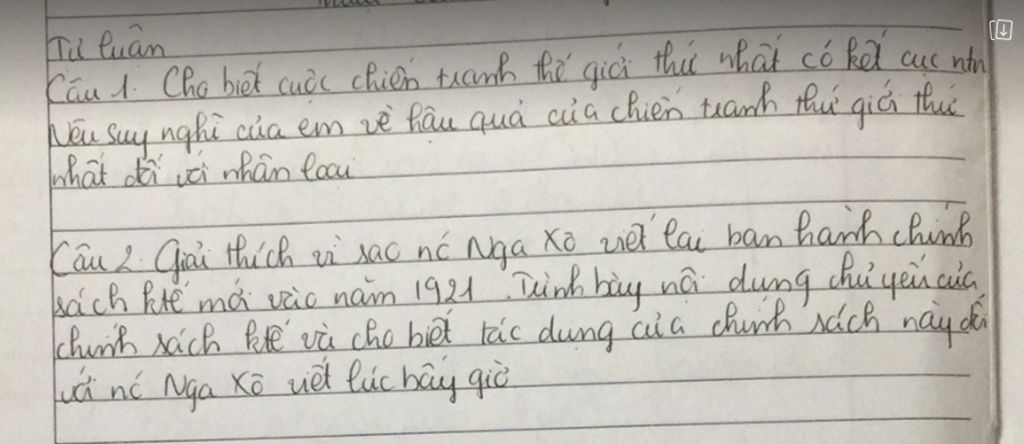 Tự luận
Câu 1. Cho biết cuộc chiến tranh thế giới thứ nhất có kết cục ntn
Nêu suy nghĩ của em về hậu quả của chiến tranh thứ giới thứ
nhất đối với nhân loại
Câu 2. Giải thích vì sao nc Nga Xô viết lại ban hành chính
sách ktế mới vào năm 1921. Trình bày nội dung chủ yếu của
chính sách ktế và cho biết tác dụng của chính sách này đối
với nc Nga Xô viết lúc bây giờ